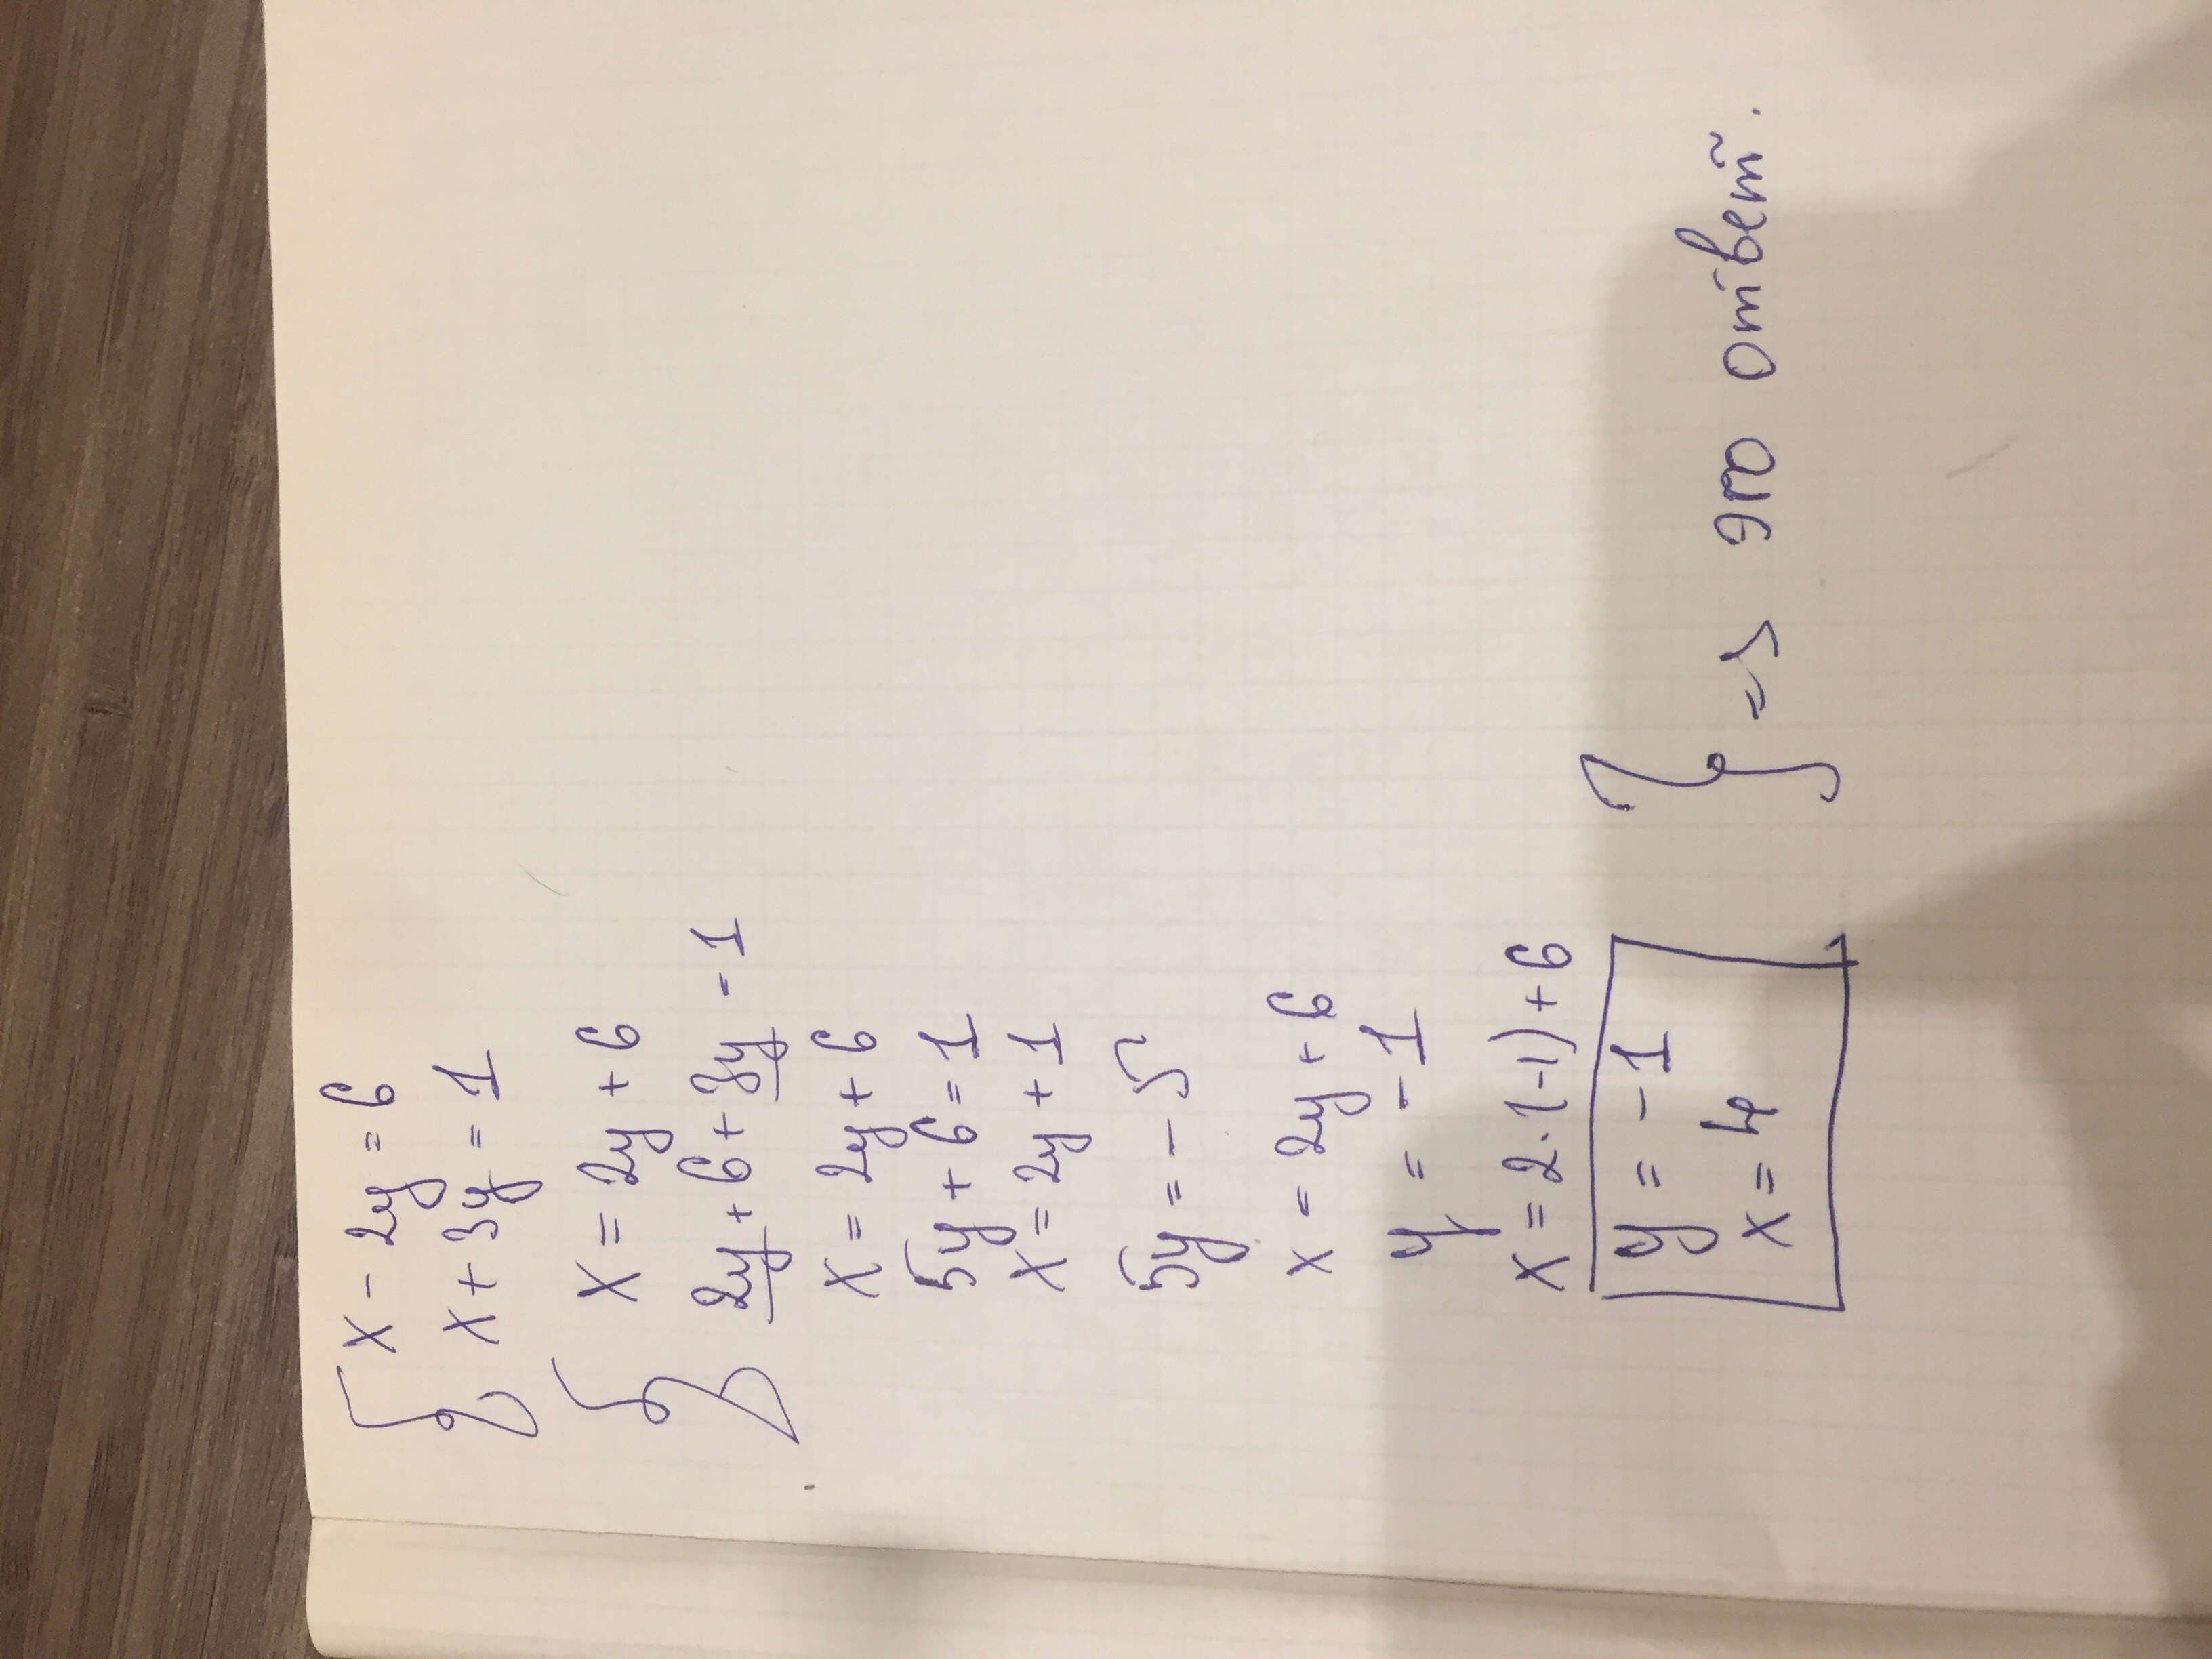 { x - 2y = 6
x + 3y = 1
{ x = 2y + 6
2y + 6 + 3y = 1
x = 2y + 6
5y + 6 = 1
x = 2y + 1
5y = - 5
x = 2y + 6
y = - 1
x = 2 · (-1) + 6
y = - 1
x = 4 } => это ответ.